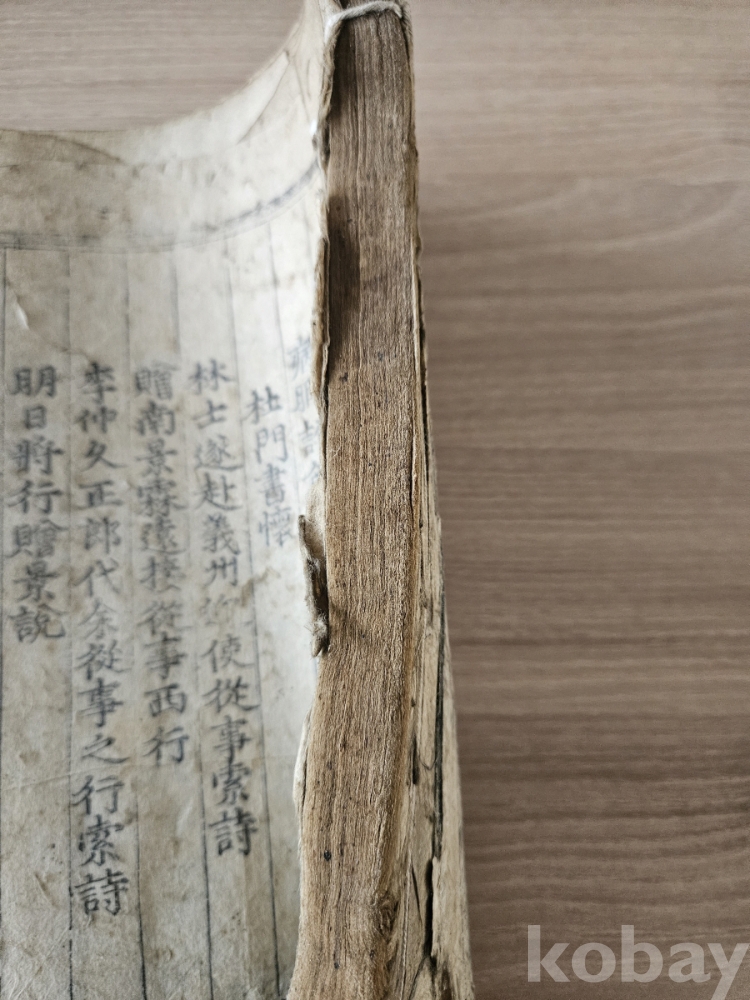 杜門書懷
林士遂赴義州使從事索詩
贈南景霖遠接從事西行
李仲久正郎代余從事之行索詩
明日將行贈景說
kobay